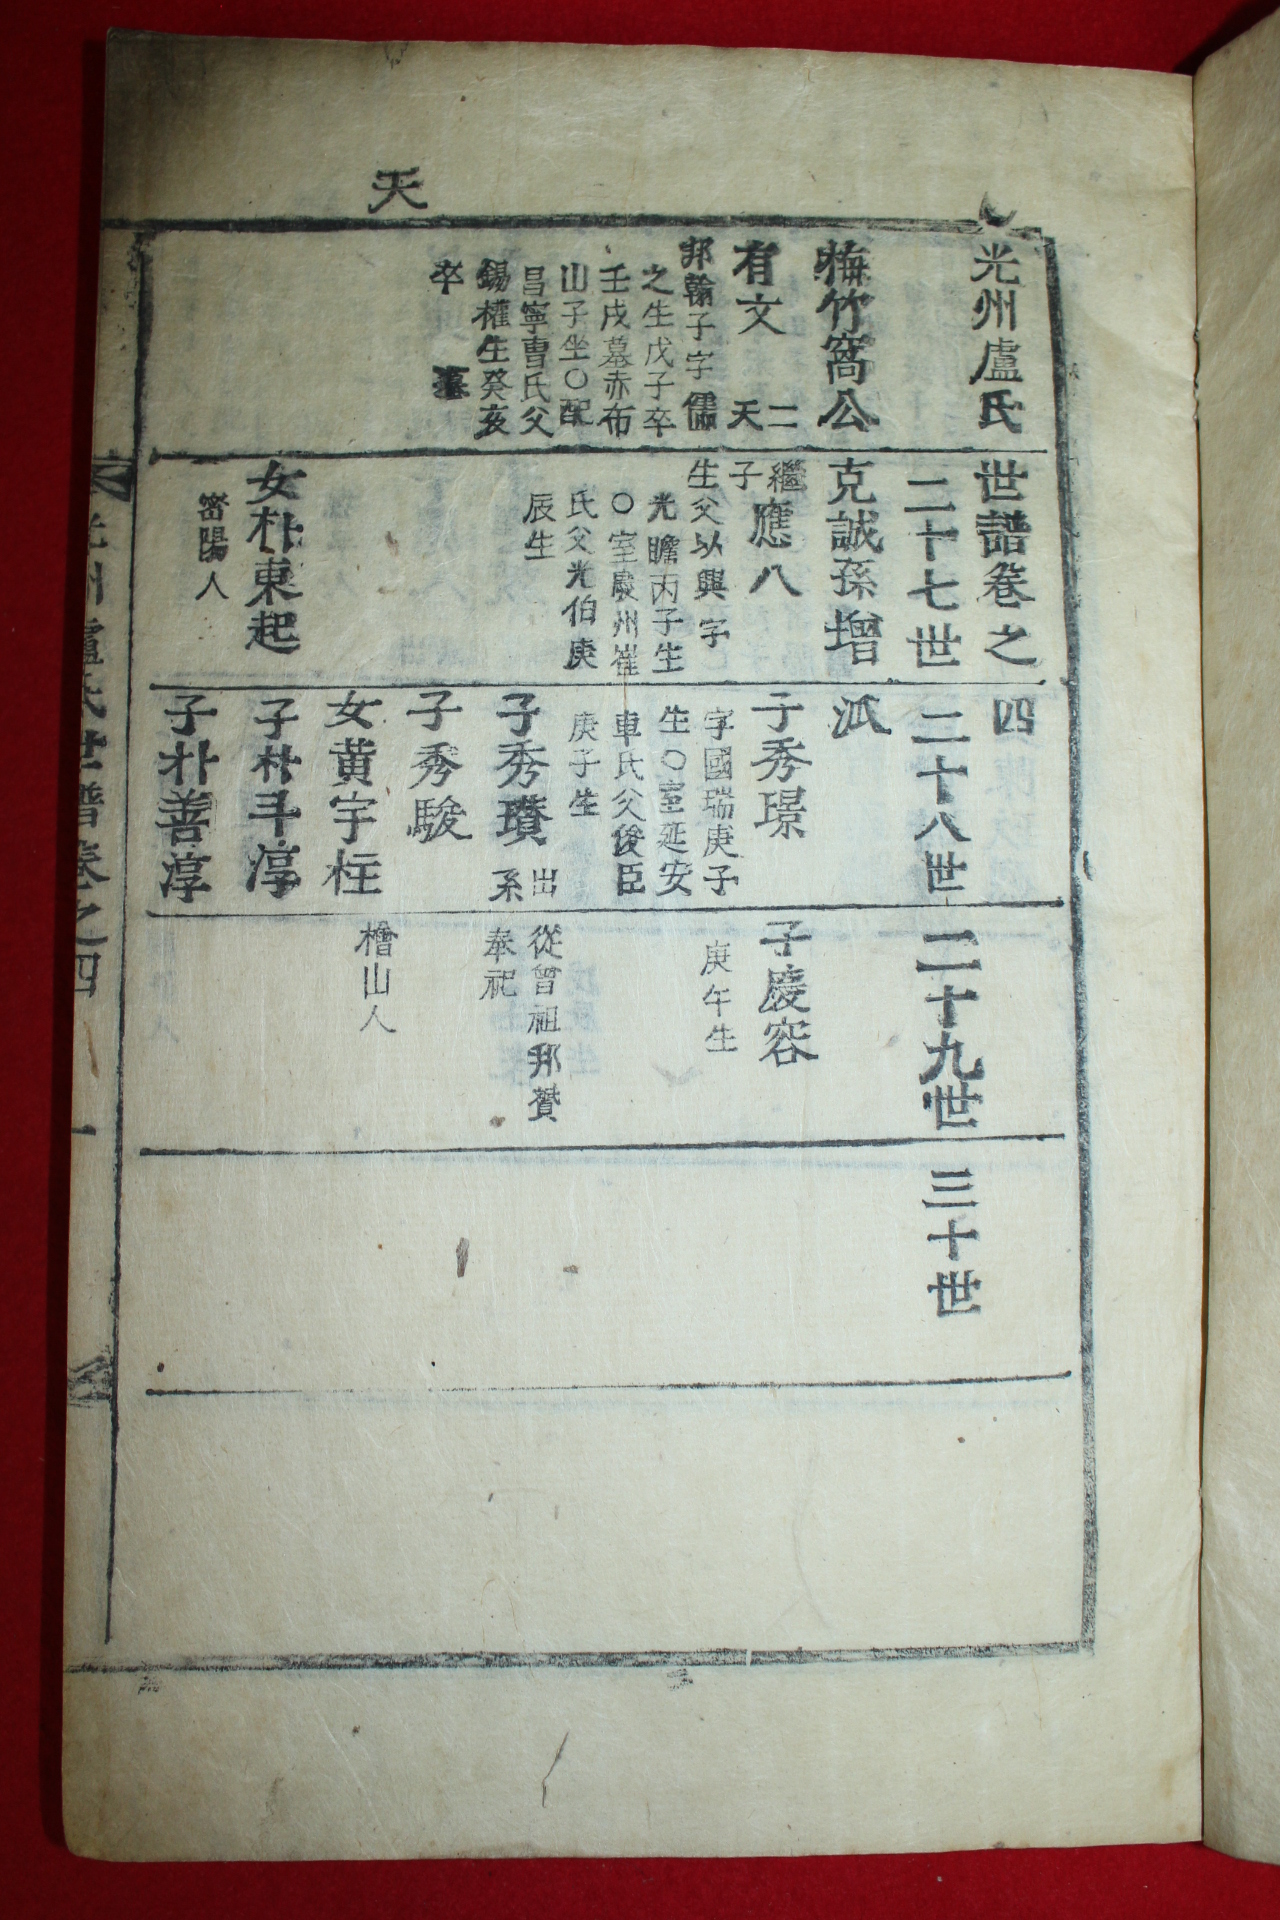 天
光州盧氏世譜卷之四
二十七世
二十八世
二十九世
三十世
梅竹窩公克誠孫增派
有文 二天
邦翰子字儒
之生戊子卒
壬戌墓赤布
山子坐○配
昌寧曹氏父
錫權生癸亥
卒 墓
繼子應八
生父以興字
光瞻丙子生
○室慶州崔
氏父光伯庚
辰生
女朴東起
密陽人
子秀璟
字國瑞庚子
生○室延安
車氏父俊臣
庚子生
子秀瓚 出系
子秀駿
女黃宇柱
子朴斗淳
子朴善淳
子慶容
庚午生
從曾祖邦贊
奉祀
檜山人
光州盧氏世譜卷之四 一